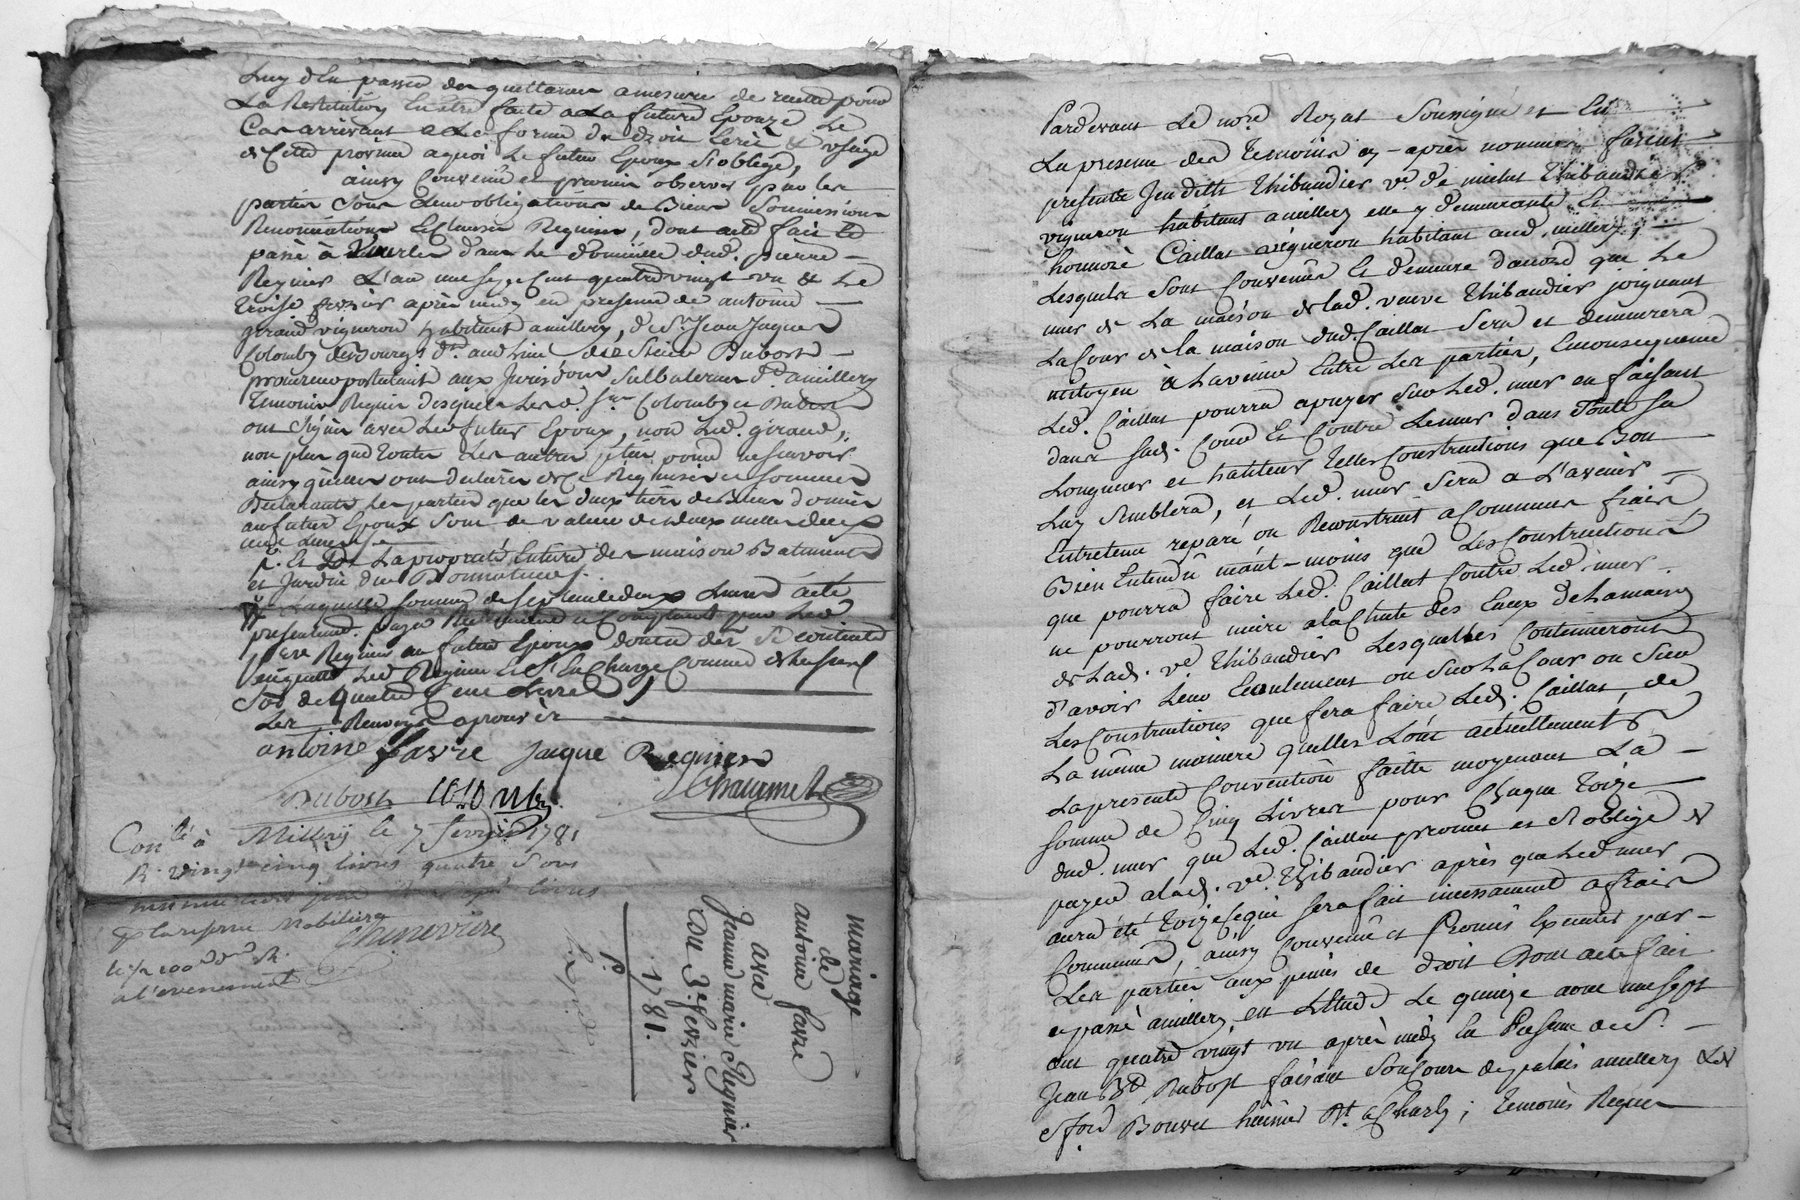 Luy d'En passer des quittances a mesure de recette pour
La Restitution En être faite a La future Epouze Le
Cas arrivant a La forme du droit Ecrit & usage
de Cette province a quoi Le futur Epoux S'oblige,
ainsy Convenu et promis observer par les
parties Sous Leurs obligations de Biens Soumissions
Renonciations Et Clauses Requises, dont acte fait Et
passé à dans Le domicille dud. pierre
Regnier L'an mil sept Cent quatre vingt un & Le
Trois fevrier après midy en presence de antoine
giraud vigneron habitant a millery, & de Sr. Jean Jaques
Colomby de Bourg dt. audt lieu & de Sieur Dubost
procureur postulant aux Jurisdons Subalternes dt. a millery
Temoins Requis desquels Lesd. Srs. Colomby et Dubost
ont Signé avec Led futur Epoux, non Led. giraud,
non plus que toutes Les autres parties pour ne Sçavoir
ainsy qu'elles ont declaré de Ce Requises et Sommées
Declarants Les parties que les deux tiers des Biens donnés
au futur Epoux Sont de valeur de deux mille deux
cent Livres
Et De La proprieté Entiere des maison Batiments
et Jardin
Laquelle Somme de Livres a été
presentement payée Réellement et Comptant par Led
Regnier au futur Epoux dont il Se Contente
En quitte Led Regnier Et S'En Charge Comme dessus
Sol de quatre Cent Livres
Les Renvois aprouvés
antoine favre Jaque Regnier
Dubost Colomby Chaumet
Conlé à Millery le 7 fevrier 1781
R. vingt cinq livres quatre Sous
livres
Mobiliere
le 100e
a l'evenement
Chenevriere
mariage
de
antoine favre
avec
Jeanne marie Regnier
Du 3e. fevrier
1781.
Pardevant Le nore. Royal Soussigné et En
La presence des Temoins cy-après nommés furent
presents Jeudith Thibaudier ve. de michel Thibaudier
vigneron habitant a millery elle y demeurante Et
honnoré Caillat vigneron habitant aud. millery,
Lesquels Sont Convenus Et demeuré d'accord que Le
mur de La maison de lad. veuve Thibaudier joignant
La Cour de la maison dud. Caillat Sera et demeurera
mitoyen à L'avenir Entre Les parties, En consequence
Led. Caillat pourra apuyer Sur Led. mur en faisant
dans Sad. Cour Et Contre Le mur dans Toute Sa
Longueur et hauteur Telles Constructions que Bon
Luy Semblera, et Led. mur Sera a L'avenir
Entretenu reparé ou Reconstruit a Communs fraix
Bien Entendu néant-moins que Les Constructions
que pourra faire Led. Caillat Contre Led. mur
ne pourront nuire a la Chute des Eaux de La maison
de Lad. ve Thibaudier Lesquelles Continueront
d'avoir Leur Ecoulement ou Sur La Cour ou Sur
Les Constructions que fera faire Led. Caillat, de
La même maniere quelles L'ont actuellement
La presente Convention faitte moyenant La
Somme de Cinq Livres pour Chaque Toize
dud. mur que Led. Caillat promet et S'oblige de
payer a Lad. ve. Thibaudier après que Led mur
aura été Toizé Ce qui Sera fait incessament a fraix
Communs, ainsy Convenu et Promis Executer par
Les parties aux peines de droit Dont acte fait
et passé a millery en L'Etude Le quinze avril mil sept
cent quatre vingt un après midy En Presence de Sr.
Jean Bte Dubost faisant Son Cours de palais a millery & de
Bouvet dt. a Charly; Temoins Requis